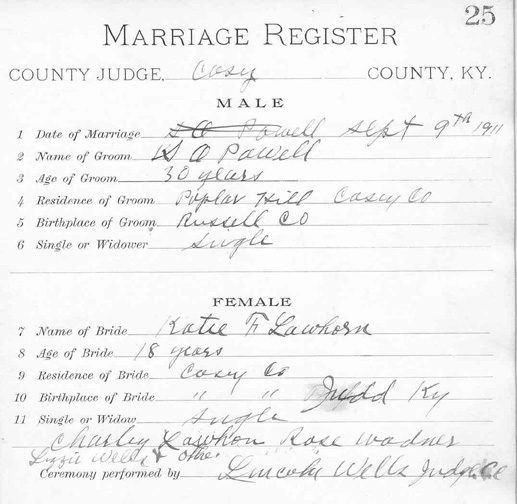 25
MARRIAGE REGISTER
COUNTY JUDGE, Casy COUNTY, KY.
MALE
1 Date of Marriage S O Powell Sept 9th 1911
2 Name of Groom S O Powell
3 Age of Groom 30 years
4 Residence of Groom Poplar Hill Casey Co
5 Birthplace of Groom Russell CO
6 Single or Widower single
FEMALE
7 Name of Bride Katie F Lawhorn
8 Age of Bride 18 years
9 Residence of Bride Casey Co
10 Birthplace of Bride " " Judd Ky
11 Single or Widow single
Charley Lawhon Rose Wadner
Lizzie Wells & Other
Ceremony performed by Lincoln Wells Judge